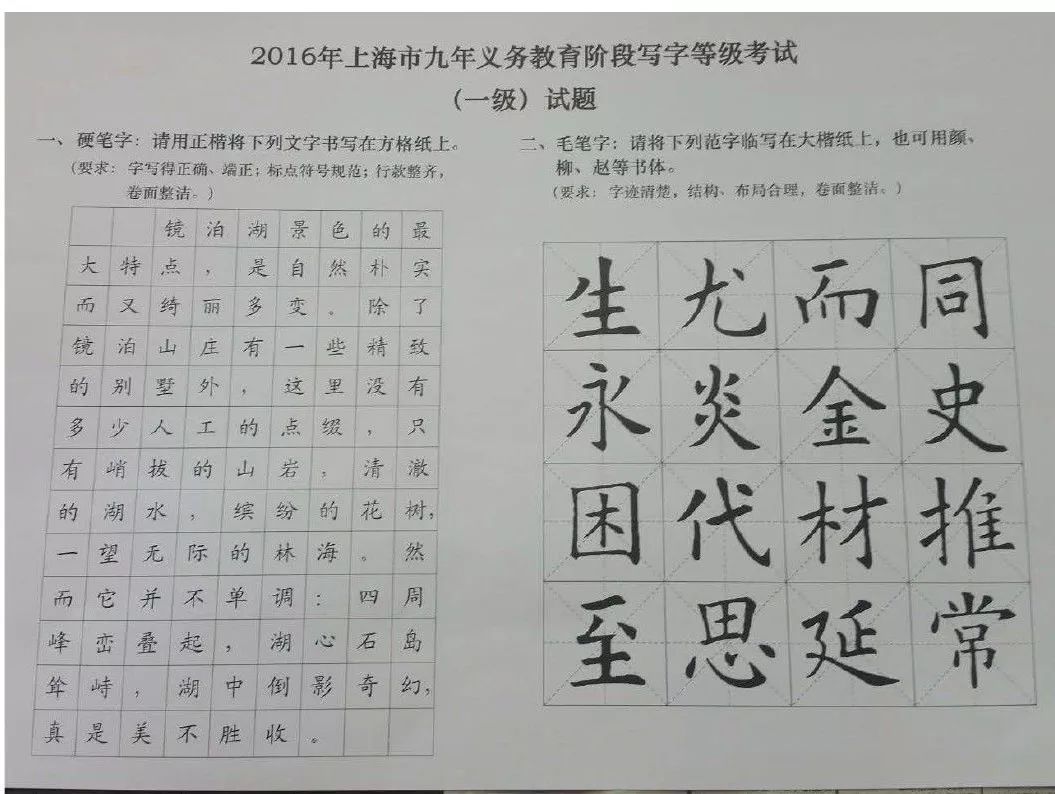 2016年上海市九年义务教育阶段写字等级考试
（一级）试题
一、硬笔字：请用正楷将下列文字书写在方格纸上。
（要求：字写得正确、端正；标点符号规范；行款整齐，
卷面整洁。）
镜泊湖景色的最
大特点，是自然朴实
而又绮丽多变。除了
镜泊山庄有一些精致
的别墅外，这里没有
多少人工的点缀，只
有峭拔的山岩，清澈
的湖水，缤纷的花树，
一望无际的林海。然
而它并不单调：四周
峰峦叠起，湖心石岛
耸峙，湖中倒影奇幻，
真是美不胜收。
二、毛笔字：请将下列范字临写在大楷纸上，也可用颜、
柳、赵等书体。
（要求：字迹清楚，结构、布局合理，卷面整洁。）
生尤而同
永炎金史
困代材推
至思延常